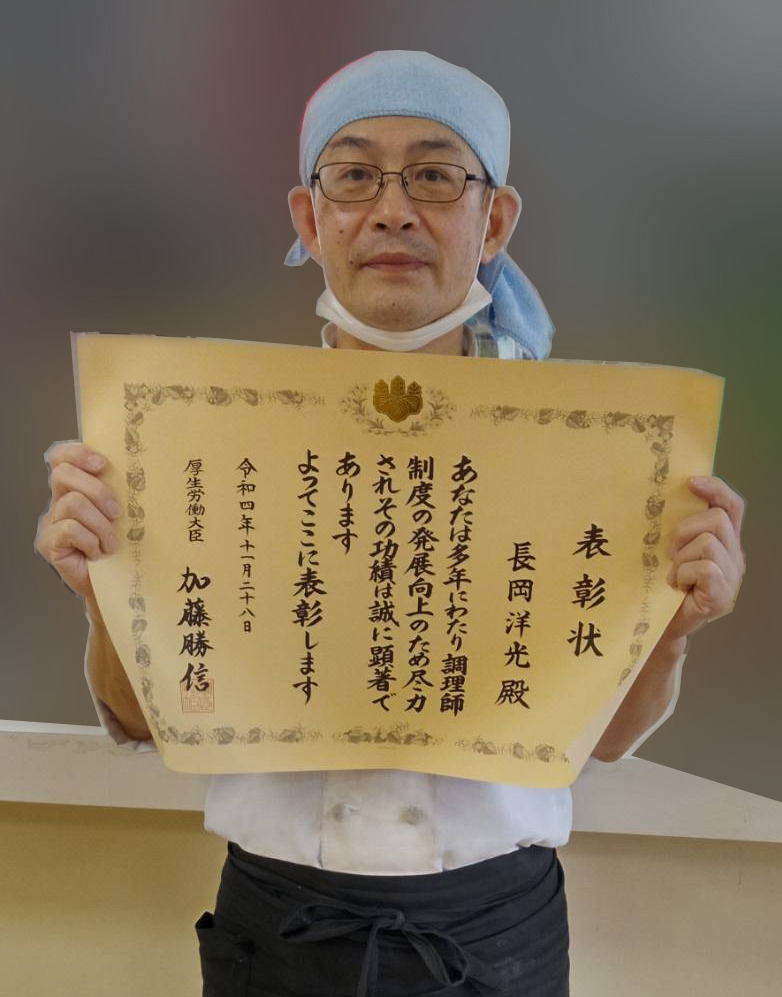 表彰状
長岡洋光殿
あなたは多年にわたり調理師
制度の発展向上のため尽力
されその功績は誠に顕著で
あります
よってここに表彰します
令和四年十一月二十八日
厚生労働大臣 加藤勝信